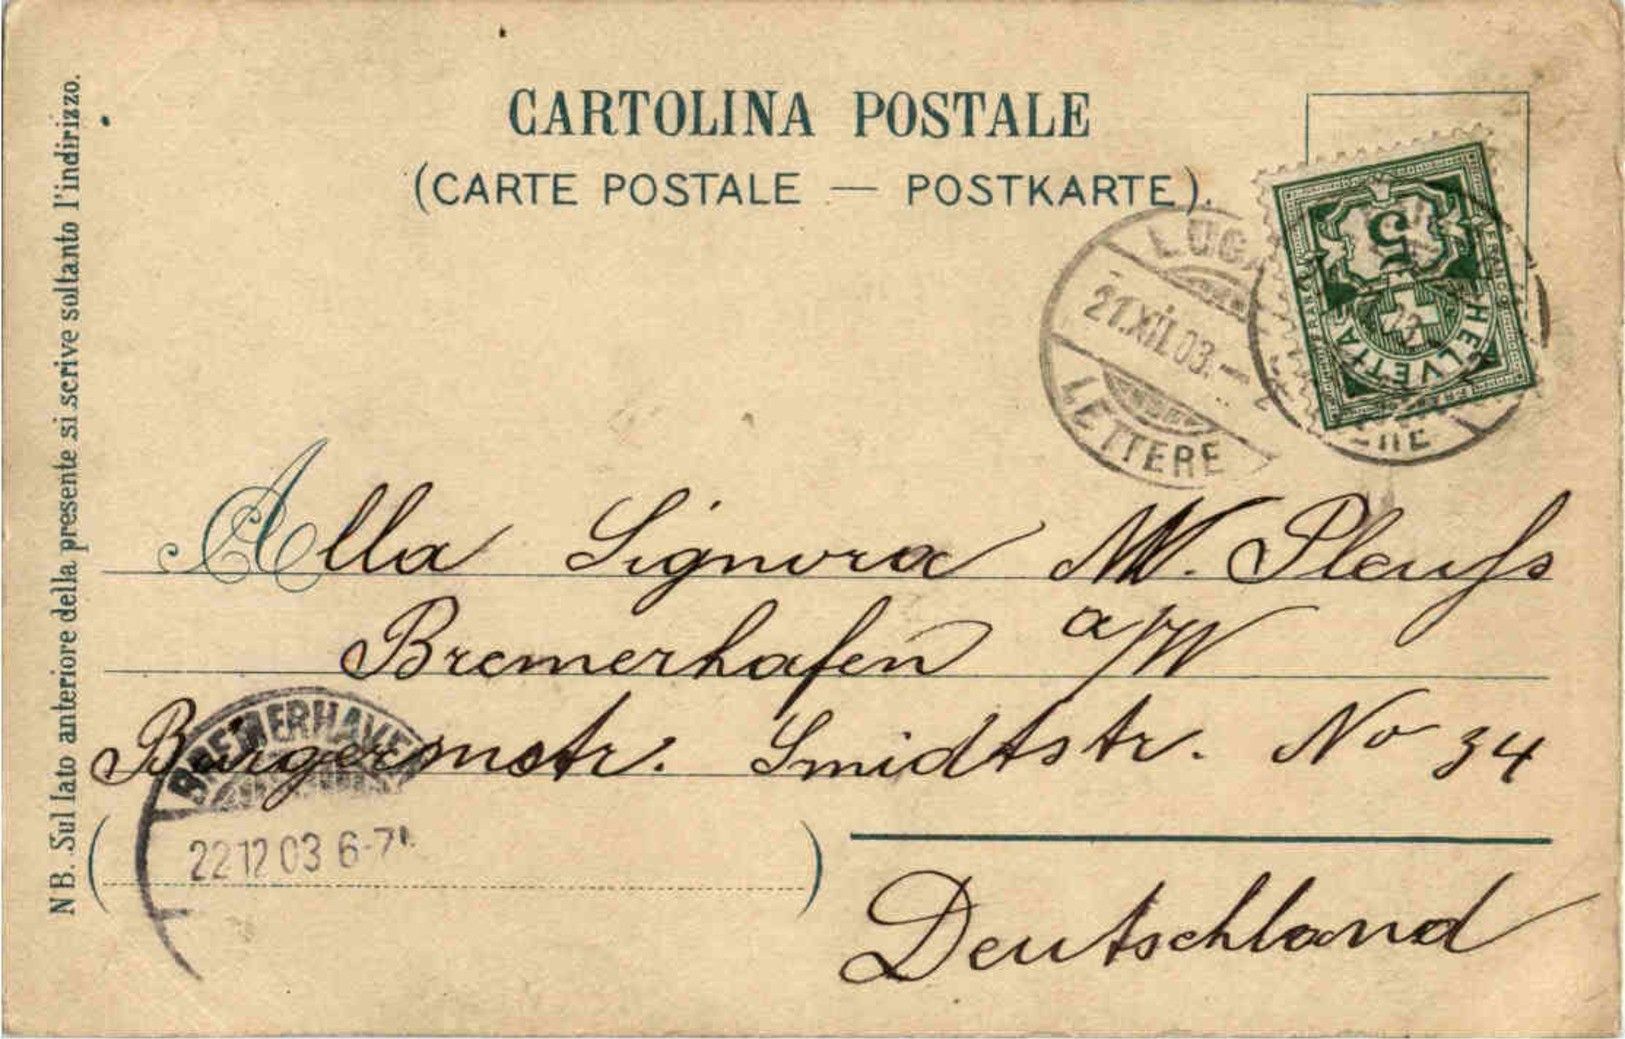 CARTOLINA POSTALE
(CARTE POSTALE — POSTKARTE).
NB. Sul lato anteriore della presente si scrive soltanto l'indirizzo.
5
HELVETIA
FRANCO
LUGA
21.XII.03.—
LETTERE
Alla Signora M. Pleuss
Bremerhafen a/W
Bürgermstr. Smidtstr. No 34
BREMERHAVE
22 12 03 6-7
Deutschland